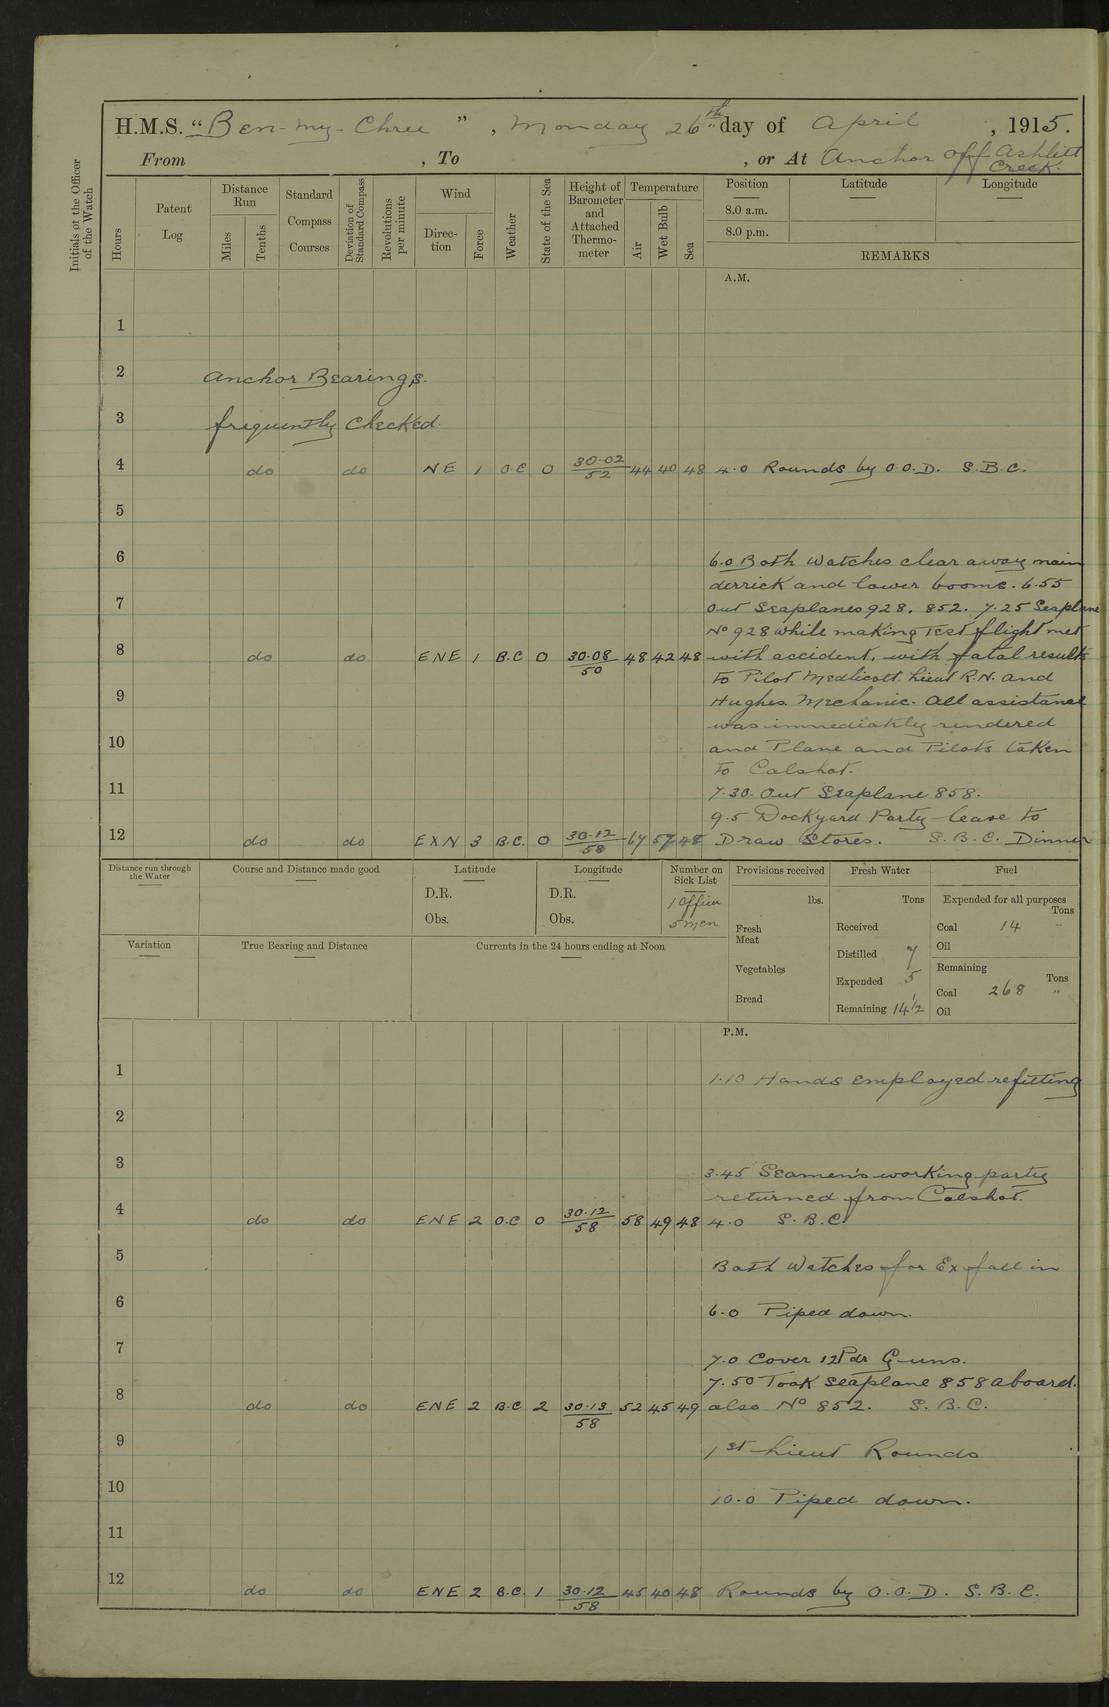 H.M.S. "Ben-my-Chree", Monday 26th day of April, 1915.
From , To , or At Anchor off Ashlett Creek.
Initials of the Officer of the Watch
Hours
Patent Log
Distance Run
Miles
Tenths
Standard Compass Courses
Deviation of Standard Compass
Revolutions per minute
Wind
Direction
Force
Weather
State of the Sea
Height of Barometer and Attached Thermometer
Temperature
Air
Wet Bulb
Sea
Position
Latitude
Longitude
8.0 a.m.
8.0 p.m.
REMARKS
A.M.
1
2 Anchor Bearings
3 frequently checked.
4 do do NE 1 O.C 0 30.02/52 44 40 48 4.0 Rounds by O.O.D. S.B.C.
5
6 6.0 Both Watches clear away main
derrick and lower booms. 6.55
7 Out Seaplanes 928, 852. 7.25 Seaplane
No 928 while making Test flight met
8 do do ENE 1 B.C 0 30.08/50 48 42 48 with accident, with fatal results
to Pilot Medlicott Lieut R.N. and
9 Hughes Mechanic. All assistance
was immediately rendered
10 and Plane and Pilots taken
to Calshot.
11 7.30. Out Seaplane 858.
9.5 Dockyard Party leave to
12 do do EXN 3 B.C. 0 30.12/58 67 57 48 Draw Stores. S.B.C. Dinner
Distance run through the Water
Course and Distance made good
Latitude
D.R.
Obs.
Longitude
D.R.
Obs.
Number on Sick List
1 Officer
5 men
Provisions received
lbs.
Fresh Meat
Vegetables
Bread
Fresh Water
Tons
Received
Distilled 7
Expended 5
Remaining 14½
Fuel
Expended for all purposes
Tons
Coal 14 "
Oil
Remaining
Tons
Coal 268 "
Oil
Variation
True Bearing and Distance
Currents in the 24 hours ending at Noon
P.M.
1 1.10 Hands employed refitting
2
3 3.45 Seamen's working party
returned from Calshot.
4 do do ENE 2 O.C 0 30.12/58 58 49 48 4.0 S.B.C.
5 Both Watches for Ex fall in
6 6.0 Piped down.
7 7.0 Cover 12Pdr Guns.
7.50 Took Seaplane 858 aboard.
8 do do ENE 2 B.C 2 30.13/58 52 45 49 also No 852. S.B.C.
9 1st Lieut Rounds
10 10.0 Piped down.
11
12 do do ENE 2 B.C. 1 30.12/58 45 40 48 Rounds by O.O.D. S.B.C.